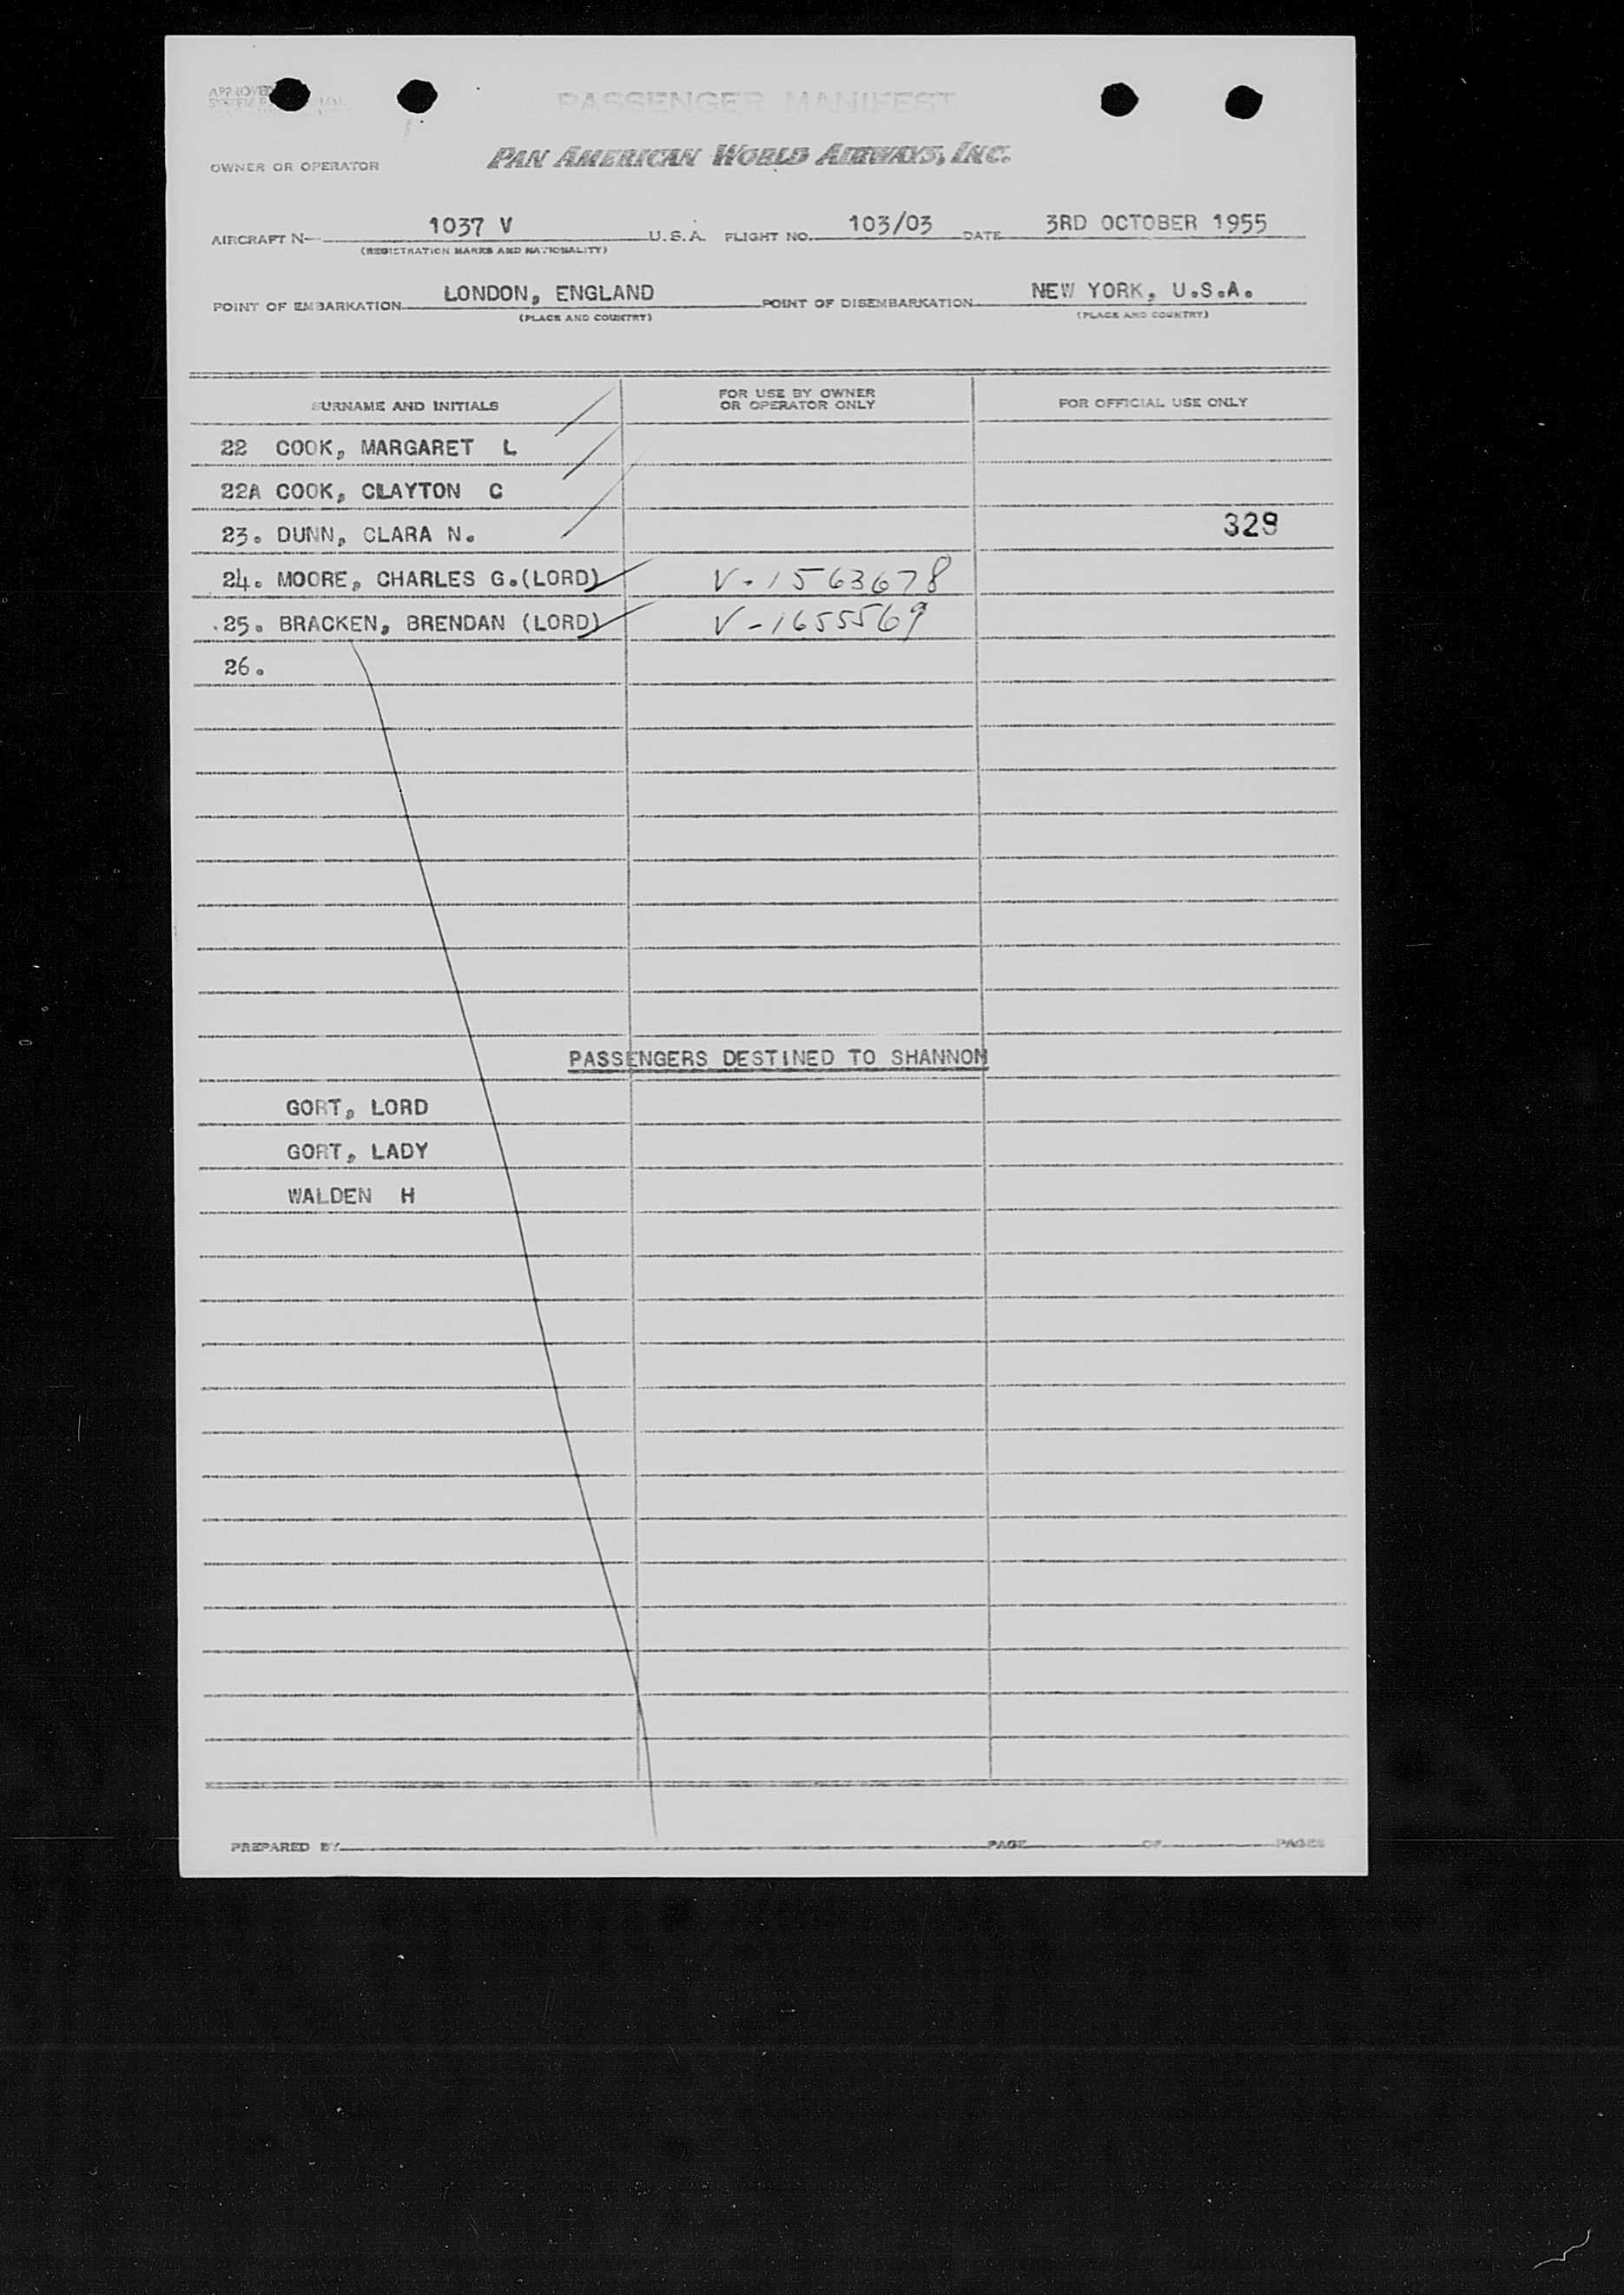 PASSENGER MANIFEST
OWNER OR OPERATOR PAN AMERICAN WORLD AIRWAYS, INC.
AIRCRAFT N 1037 V U.S.A. FLIGHT NO. 103/03 DATE 3RD OCTOBER 1955
(REGISTRATION MARKS AND NATIONALITY)
POINT OF EMBARKATION LONDON, ENGLAND POINT OF DISEMBARKATION NEW YORK, U.S.A.
(PLACE AND COUNTRY) (PLACE AND COUNTRY)
SURNAME AND INITIALS FOR USE BY OWNER OR OPERATOR ONLY FOR OFFICIAL USE ONLY
22 COOK, MARGARET L
22A COOK, CLAYTON C
23. DUNN, CLARA N. 329
24. MOORE, CHARLES G.(LORD) V-1563678
25. BRACKEN, BRENDAN (LORD) V-1655569
26.
PASSENGERS DESTINED TO SHANNON
GORT, LORD
GORT, LADY
WALDEN H
PREPARED BY PAGE OF PAGES